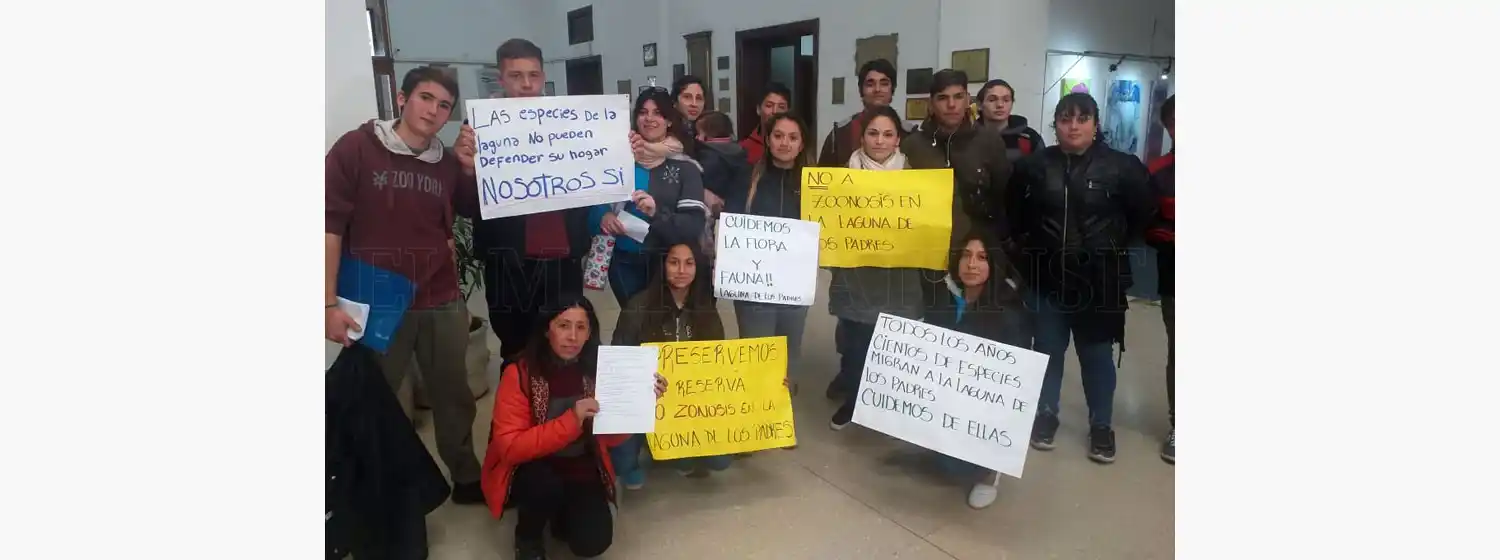 LAS especies de la
laguna NO pueden
Defender su hogar
NOSOTROS SI
ZOO YORK
CUIDEMOS
LA FLORA
Y
FAUNA!!
LAGUNA DE LOS PADRES
NO A
ZOONOSIS EN
LA LAGUNA DE
LOS PADRES
PRESERVEMOS
RESERVA
NO ZONOSIS EN LA
LAGUNA DE LOS PADRES
TODOS LOS AÑOS
CIENTOS DE ESPECIES
MIGRAN A LA LAGUNA DE
LOS PADRES
CUIDEMOS DE ELLAS
EL MARPLATENSE